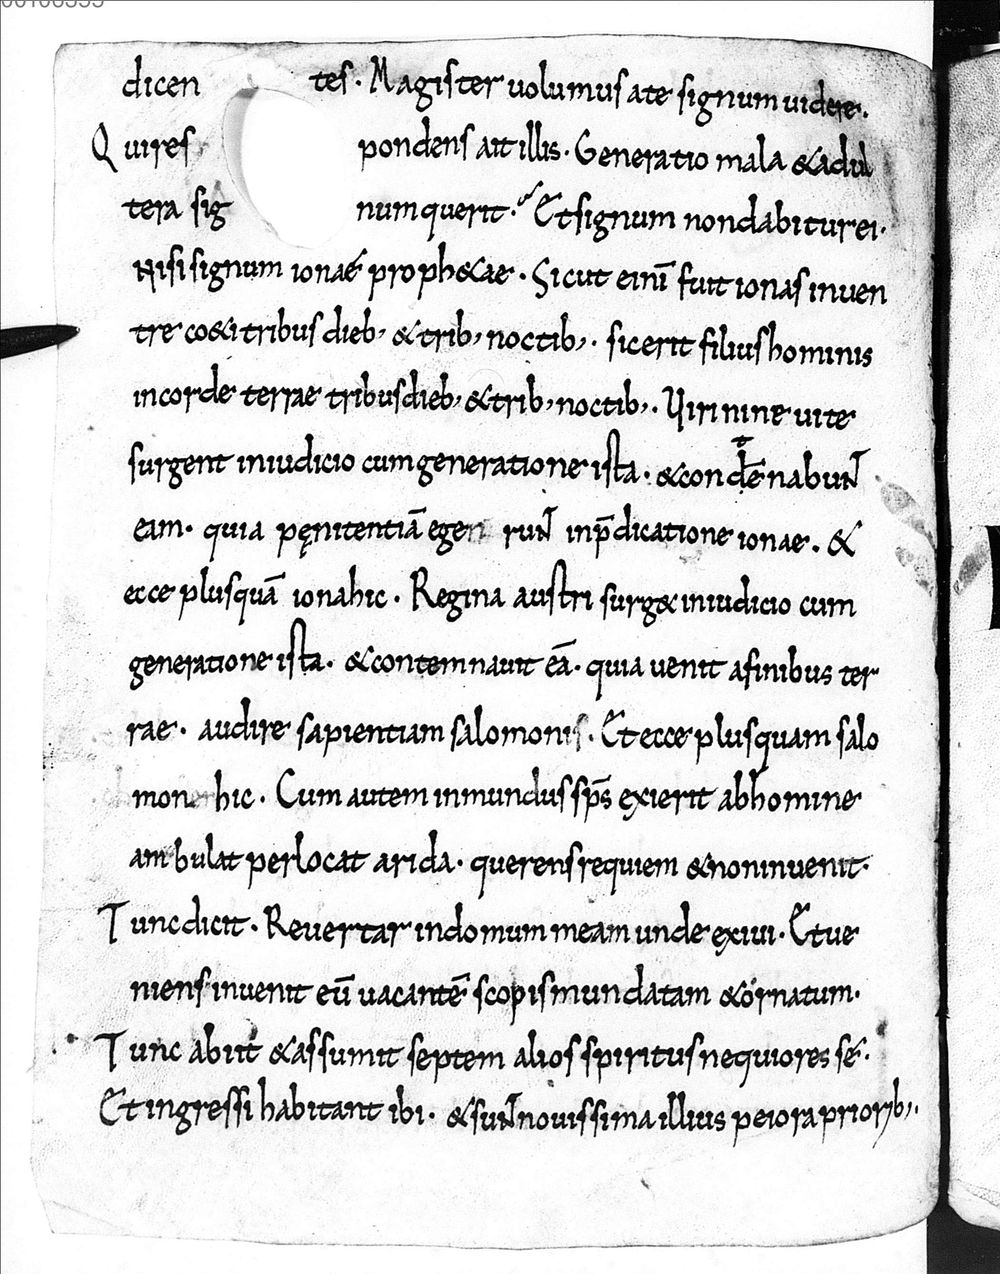 dicen tes. Magister uolumus a te signum uidere.
Qui res pondens ait illis. Generatio mala & adul
tera sig num querit. Et signum non dabitur ei.
Nisi signum ionae proph&ae. Sicut eini fuit ionas in uen
tre co&i tribus dieb, & trib, noctib,. sic erit filius hominis
in corde terrae tribus dieb, & trib, noctib,. Uiri nineuite
surgent in iudicio cum generatione ista. & condenabunt
eam. quia pęnitentiā egerunt in p̄dicatione ionae. &
ecce plus quā iona hic. Regina austri surg& in iudicio cum
generatione ista. & contemnauit eā. quia uenit a finibus ter
rae. audire sapientiam salomonis. Et ecce plus quam salo
mone hic. Cum autem inmundus sp̄s exierit ab homine
ambulat per loca arida. querens requiem & non inuenit.
Tunc dicit. Reuertar in domum meam unde exiui. Et ue
niens inuenit eū uacantē scopis mundatam & ornatum.
Tunc abiit & assumit septem alios spiritus nequiores se.
Et ingressi habitant ibi. & sunt nouissima illius peiora priorib,.